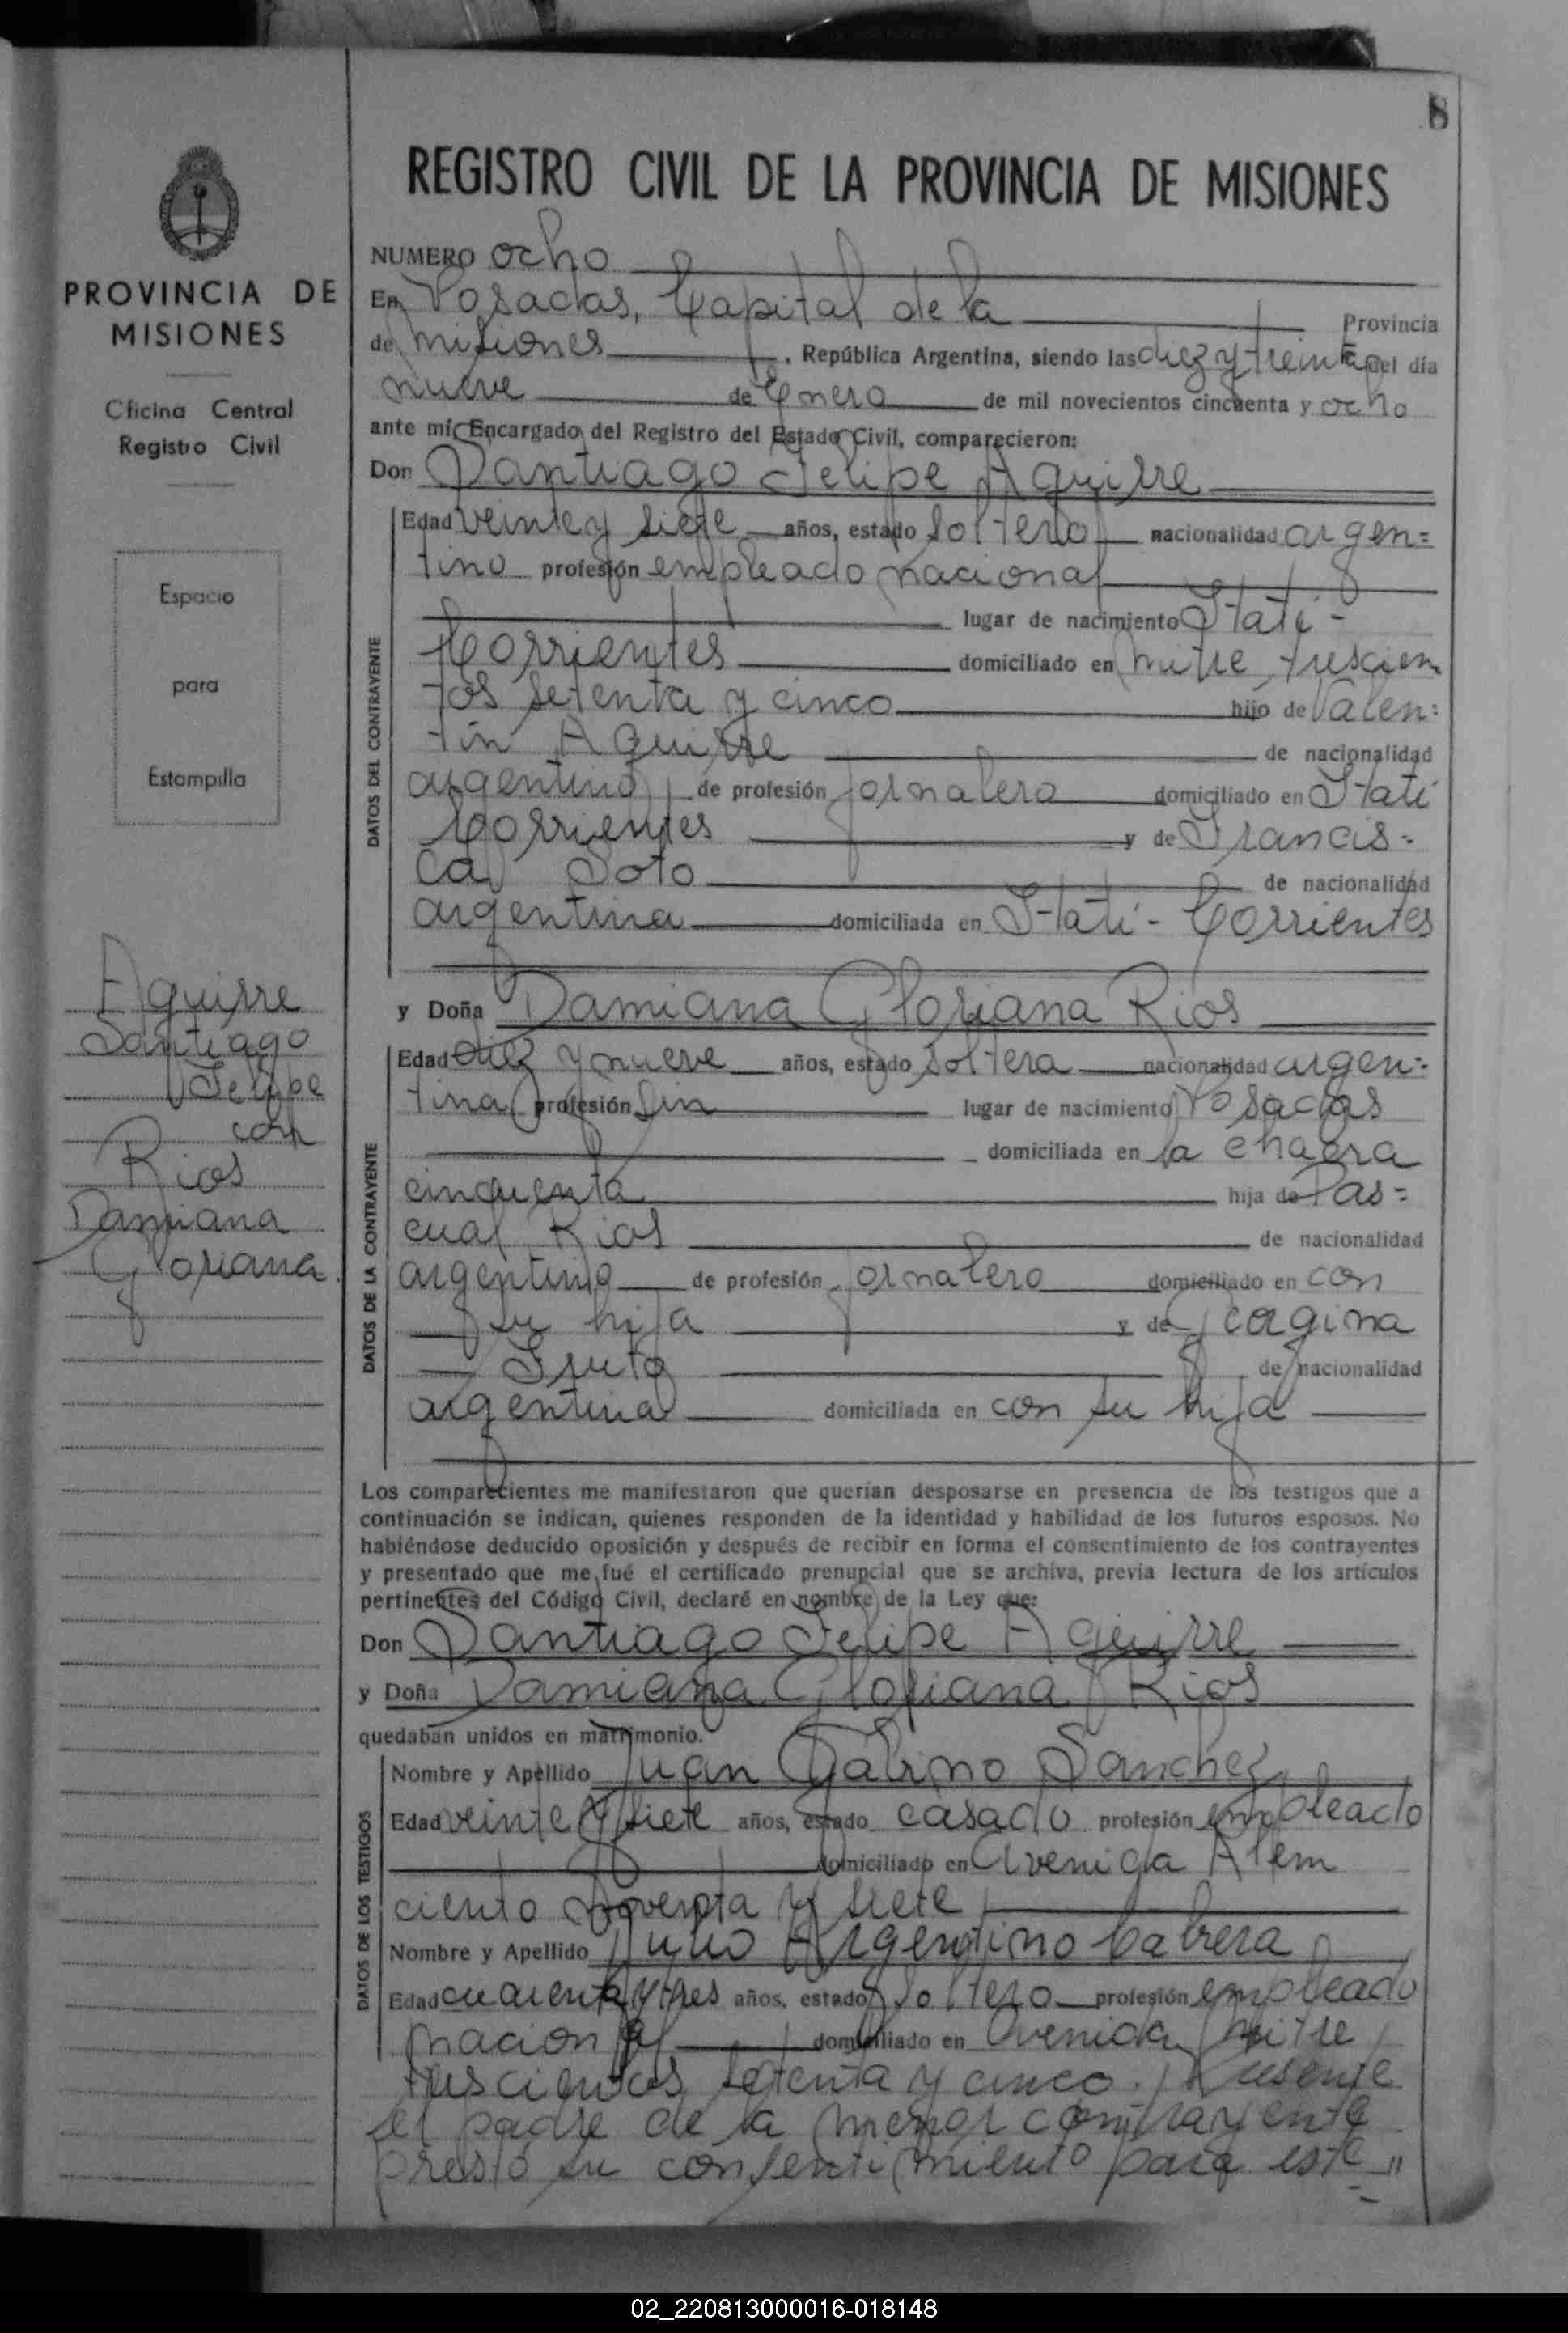 8
REGISTRO CIVIL DE LA PROVINCIA DE MISIONES
PROVINCIA DE
MISIONES
Oficina Central
Registro Civil
Espacio
para
Estampilla
Aguirre
Santiago
Felipe
con
Rios
Damiana
Gloriana
NUMERO ocho
En Posadas, Capital de la Provincia
de Misiones, República Argentina, siendo las diez y treinta del día
nueve de Enero de mil novecientos cincuenta y ocho
ante mí, Encargado del Registro del Estado Civil, comparecieron:
Don Santiago Felipe Aguirre
DATOS DEL CONTRAYENTE
Edad veinte y siete años, estado soltero nacionalidad argen=
tino profesión empleado nacional
lugar de nacimiento Itatí -
Corrientes domiciliado en Mitre trescien
tos setenta y cinco hijo de Valen=
tín Aguirre de nacionalidad
argentino de profesión jornalero domiciliado en Itatí
Corrientes y de Francis=
ca Soto de nacionalidad
argentina domiciliada en Itatí - Corrientes
y Doña Damiana Gloriana Rios
DATOS DE LA CONTRAYENTE
Edad diez y nueve años, estado soltera nacionalidad argen=
tina profesión sin lugar de nacimiento Posadas
domiciliada en la chacra
cincuenta hija de Pas=
cual Rios de nacionalidad
argentino de profesión jornalero domiciliado en con
su hija y de Georgina
Fruto de nacionalidad
argentina domiciliada en con su hija
Los comparecientes me manifestaron que querían desposarse en presencia de los testigos que a
continuación se indican, quienes responden de la identidad y habilidad de los futuros esposos. No
habiéndose deducido oposición y después de recibir en forma el consentimiento de los contrayentes
y presentado que me fué el certificado prenupcial que se archiva, previa lectura de los artículos
pertinentes del Código Civil, declaré en nombre de la Ley que:
Don Santiago Felipe Aguirre
y Doña Damiana Gloriana Rios
quedaban unidos en matrimonio.
DATOS DE LOS TESTIGOS
Nombre y Apellido Juan Gabino Sanchez
Edad veinte y siete años, estado casado profesión empleado
domiciliado en Avenida Alem
ciento noventa y siete
Nombre y Apellido Julio Argentino Cabrera
Edad cuarenta y tres años, estado soltero profesión empleado
nacional domiciliado en Avenida Mitre
trescientos setenta y cinco. Presente
el padre de la menor contrayente
prestó su consentimiento para este "
02_220813000016-018148